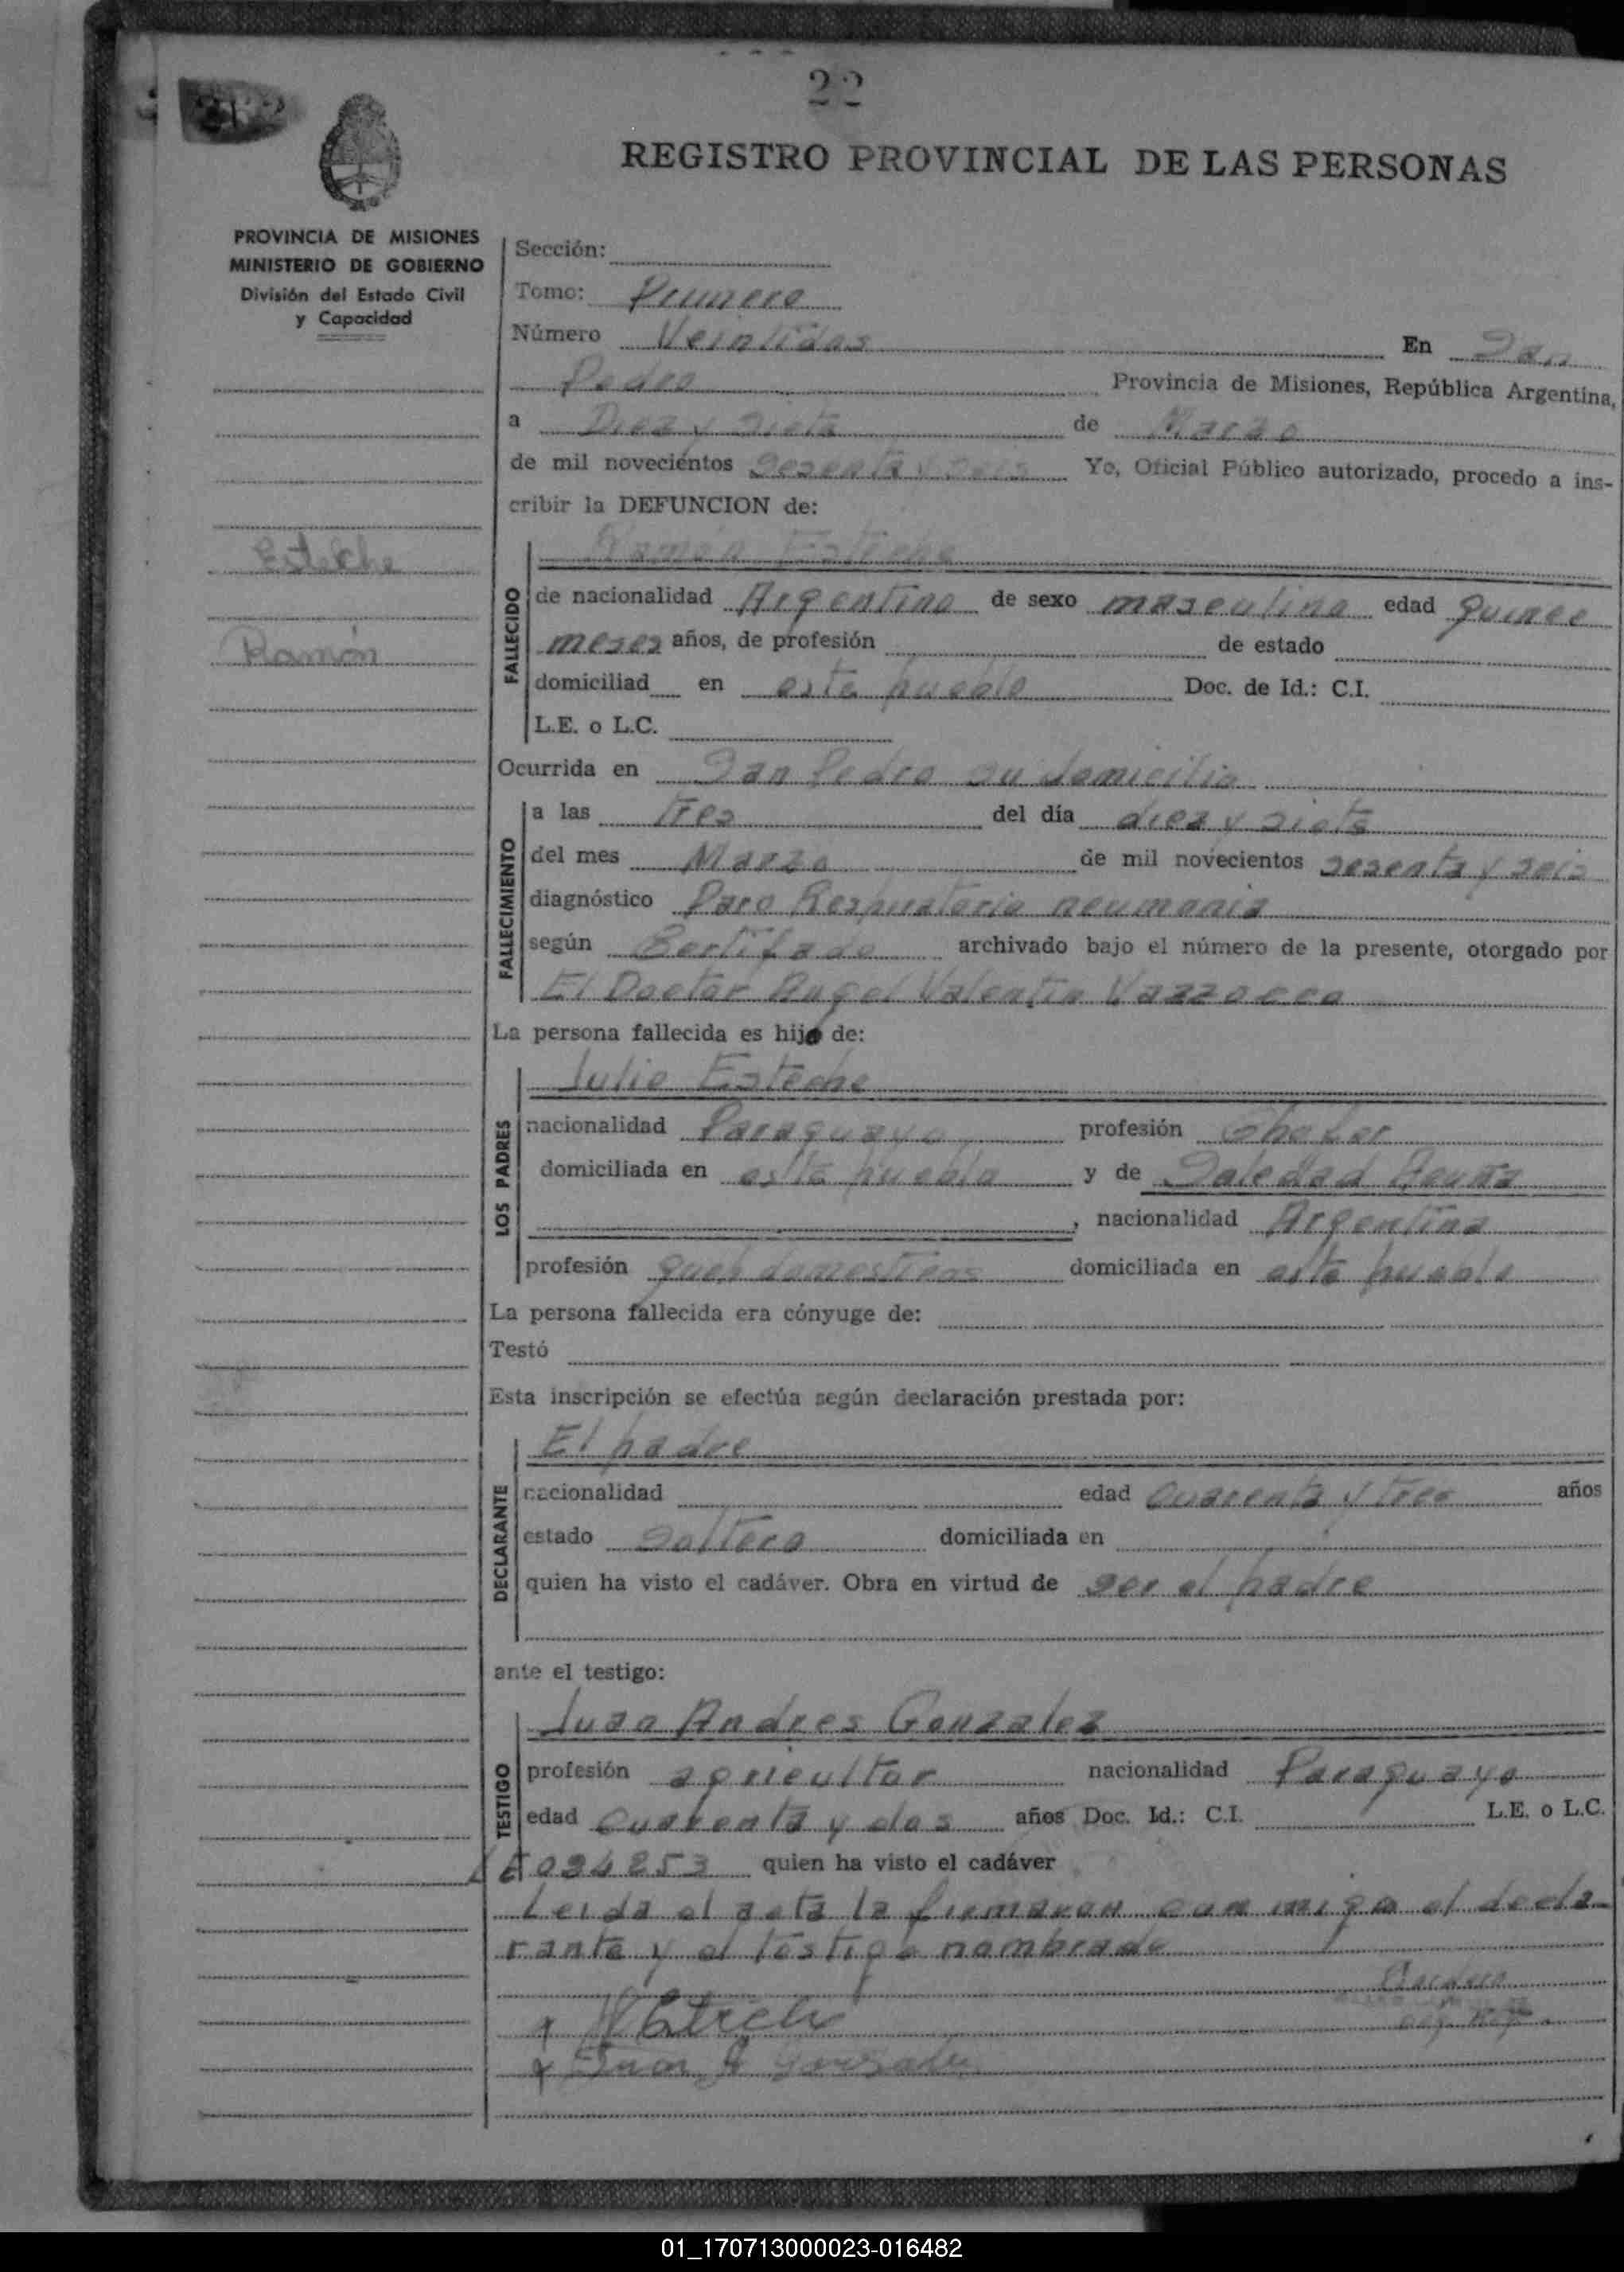 22
REGISTRO PROVINCIAL DE LAS PERSONAS
PROVINCIA DE MISIONES
MINISTERIO DE GOBIERNO
División del Estado Civil
y Capacidad
Esteche
Ramón
Sección:
Tomo: Primero
Número Veintidos En San
Pedro Provincia de Misiones, República Argentina,
a Diez y siete de Marzo
de mil novecientos sesenta y seis Yo, Oficial Público autorizado, procedo a ins-
cribir la DEFUNCION de:
Ramón Esteche
FALLECIDO
de nacionalidad Argentino de sexo masculino edad quince
meses años, de profesión de estado
domiciliad en este pueblo Doc. de Id.: C.I.
L.E. o L.C.
Ocurrida en San Pedro su domicilio
FALLECIMIENTO
a las tres del día diez y siete
del mes Marzo de mil novecientos sesenta y seis
diagnóstico Paro Respiratorio neumonia
según Sertifado archivado bajo el número de la presente, otorgado por
El Doctor Angel Valentin Vazzocco
La persona fallecida es hijo de:
LOS PADRES
Julio Esteche
nacionalidad Paraguayo profesión Chofer
domiciliada en este pueblo y de Soledad
, nacionalidad Argentina
profesión queh domesticos domiciliada en este pueblo
La persona fallecida era cónyuge de:
Testó
Esta inscripción se efectúa según declaración prestada por:
DECLARANTE
El padre
nacionalidad edad cuarenta y tres años
estado soltero domiciliada en
quien ha visto el cadáver. Obra en virtud de ser el padre
ante el testigo:
TESTIGO
Juan Andres Gonzalez
profesión agricultor nacionalidad Paraguayo
edad cuarenta y dos años Doc. Id.: C.I. L.E. o L.C.
quien ha visto el cadáver
Leida el acta la firmaron con migo el decla-
rante y el testigo nombrado